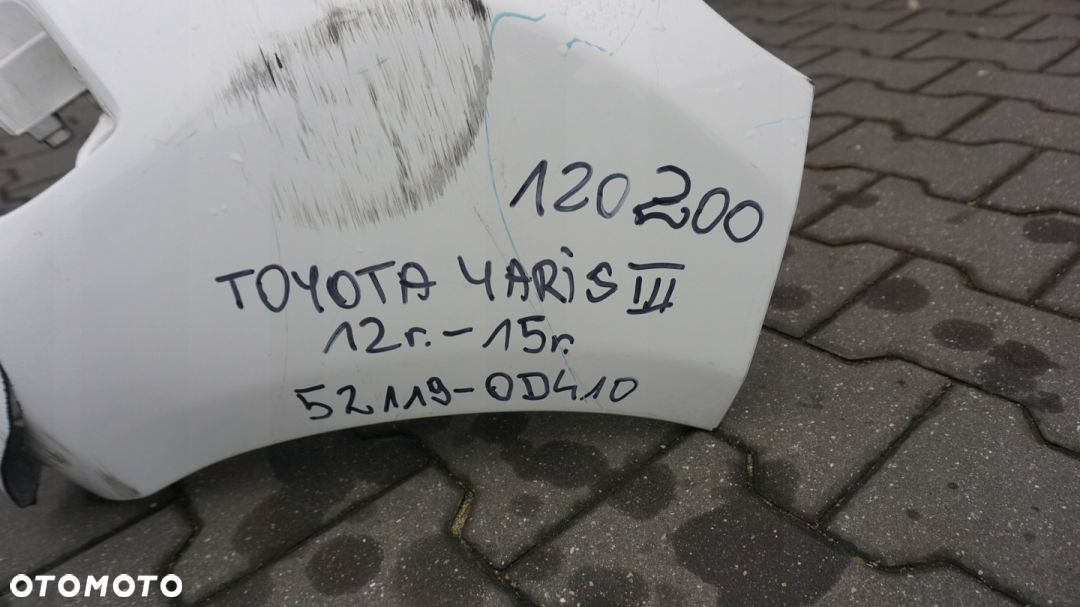 120200
TOYOTA YARiS III
12r.-15r.
52119-0D410
OTOMOTO